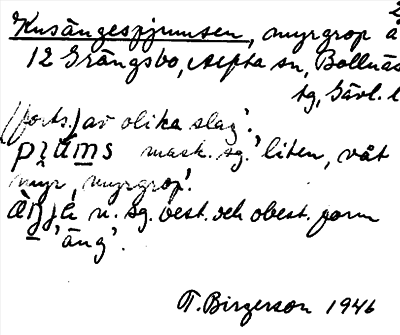 2
Kusängespjumsen, myrgrop å
12 Grängsbo, Alfta sn, Bollnäs
tg, Gävl. l
(forts.) av olika slag'.
mask. sg. 'liten, våt
myr, myrgrop'.
n. sg. best. och obest. form
'äng'.
T. Birgerson 1946